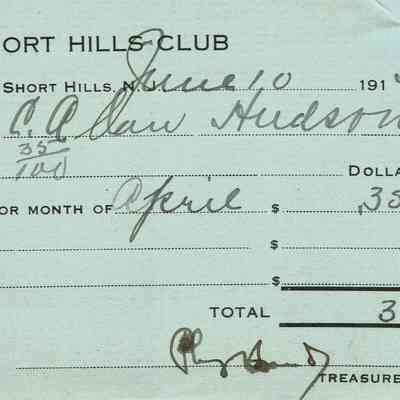 ORT HILLS CLUB
SHORT HILLS, N. June 10 191
C. Alan Hudson
35/100
DOLLA
OR MONTH OF April $ .35
$
$
TOTAL 3
TREASURE